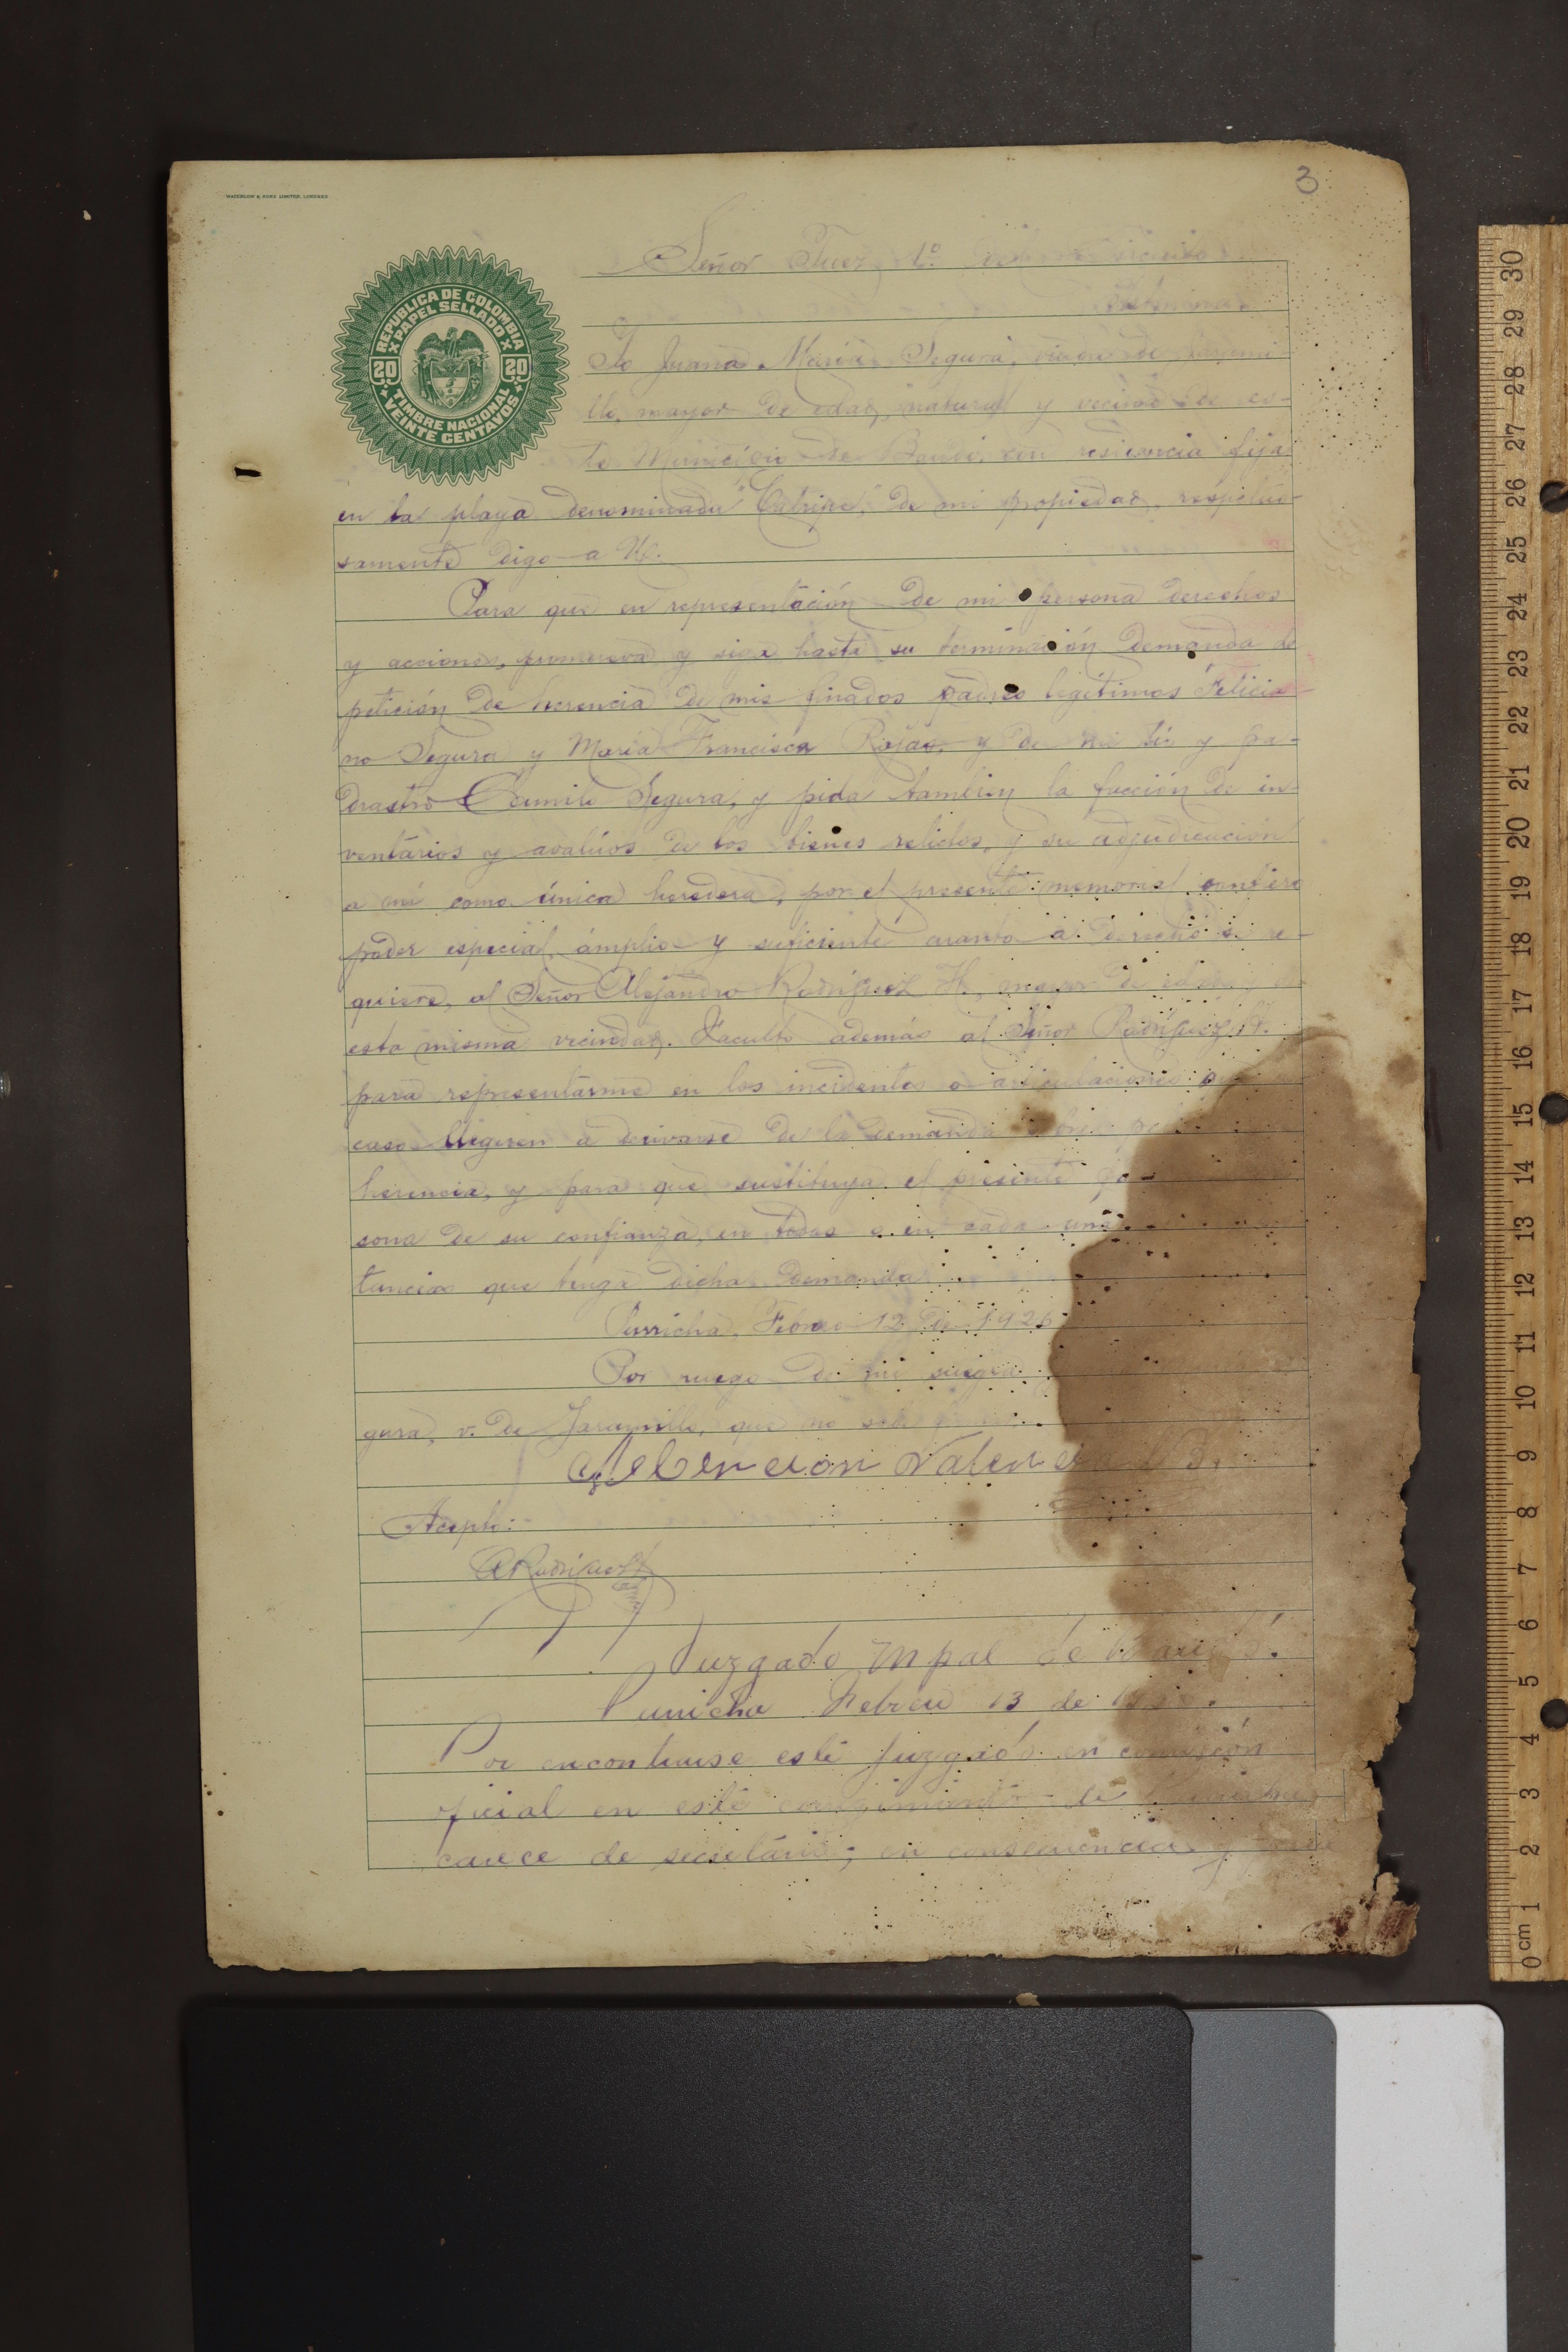 3
WATERLOW & SONS LIMITED, LONDRES
REPUBLICA DE COLOMBIA
PAPEL SELLADO
20 20
TIMBRE NACIONAL
VEINTE CENTAVOS
Señor Juez 1º. del Circuito
Yo Juana María Segura, viuda de Jarami-
llo, mayor de edad, natural y vecina de es-
te Municipio de Baudó, con residencia fija
en la playa denominada "Catripe," de mi propiedad, respetuo-
samente digo a Ud.
Para que en representación de mi persona derechos
y acciones, promueva y siga hasta su terminación demanda de
petición de herencia de mis finados padres legítimos Felicia-
no Segura y María Francisca Rojas, y de mi tío y pa-
drastro Camilo Segura, y pida tambien la facción de in-
ventarios y avalúos de los bienes relictos, y su adjudicación
a mí como única heredera, por el presente memorial confiero
poder especial, ámplio y suficiente cuanto a derecho se re-
quiere, al Señor Alejandro Rodríguez H., mayor de edad y de
esta misma vecindad. Faculto además al Señor Rodríguez H.
para representarme en los incidentes o articulaciones
caso llegaren a derivarse de la demanda sobre
herencia, y para que sustituya el presente
sona de su confianza, en todas o en cada una
tancias que tenga dicha demanda
Purricha, Febrero 12 de 1926
Por ruego de mi suegra
gura, v. de Jaramillo, que no sabe
Valencia B.
Acepto:
ARodríguezH
Juzgado Mpal de Baudó.
Purricha Febrero 13 de
Por encontrarse este Juzgado en comisión
oficial en este corregimiento de Purricha
carece de secretario; en consecuencia y